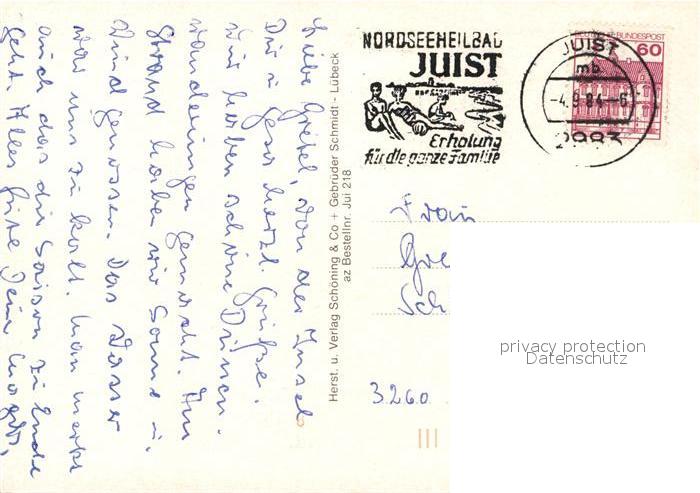 Liebe Gretel, von der Insel
Dir u. Gero herzl. Grüße.
Wir haben schöne Dünen-
wanderungen gemacht. Am
Strand haben wir Sonne u.
Wind genossen. Das Wasser
war uns zu kalt. Man merkt
auch das die Saison zu Ende
geht. Alles Gute Deine
Herst. u. Verlag Schöning & Co + Gebrüder Schmidt - Lübeck
az Bestellnr. Jui 218
NORDSEEHEILBAD
JUIST
Erholung
für die ganze Familie
JUIST
mb
-4.9.84--6
2983
DEUTSCHE BUNDESPOST
60
Frau
Gre
Sch
3260
privacy protection
Datenschutz